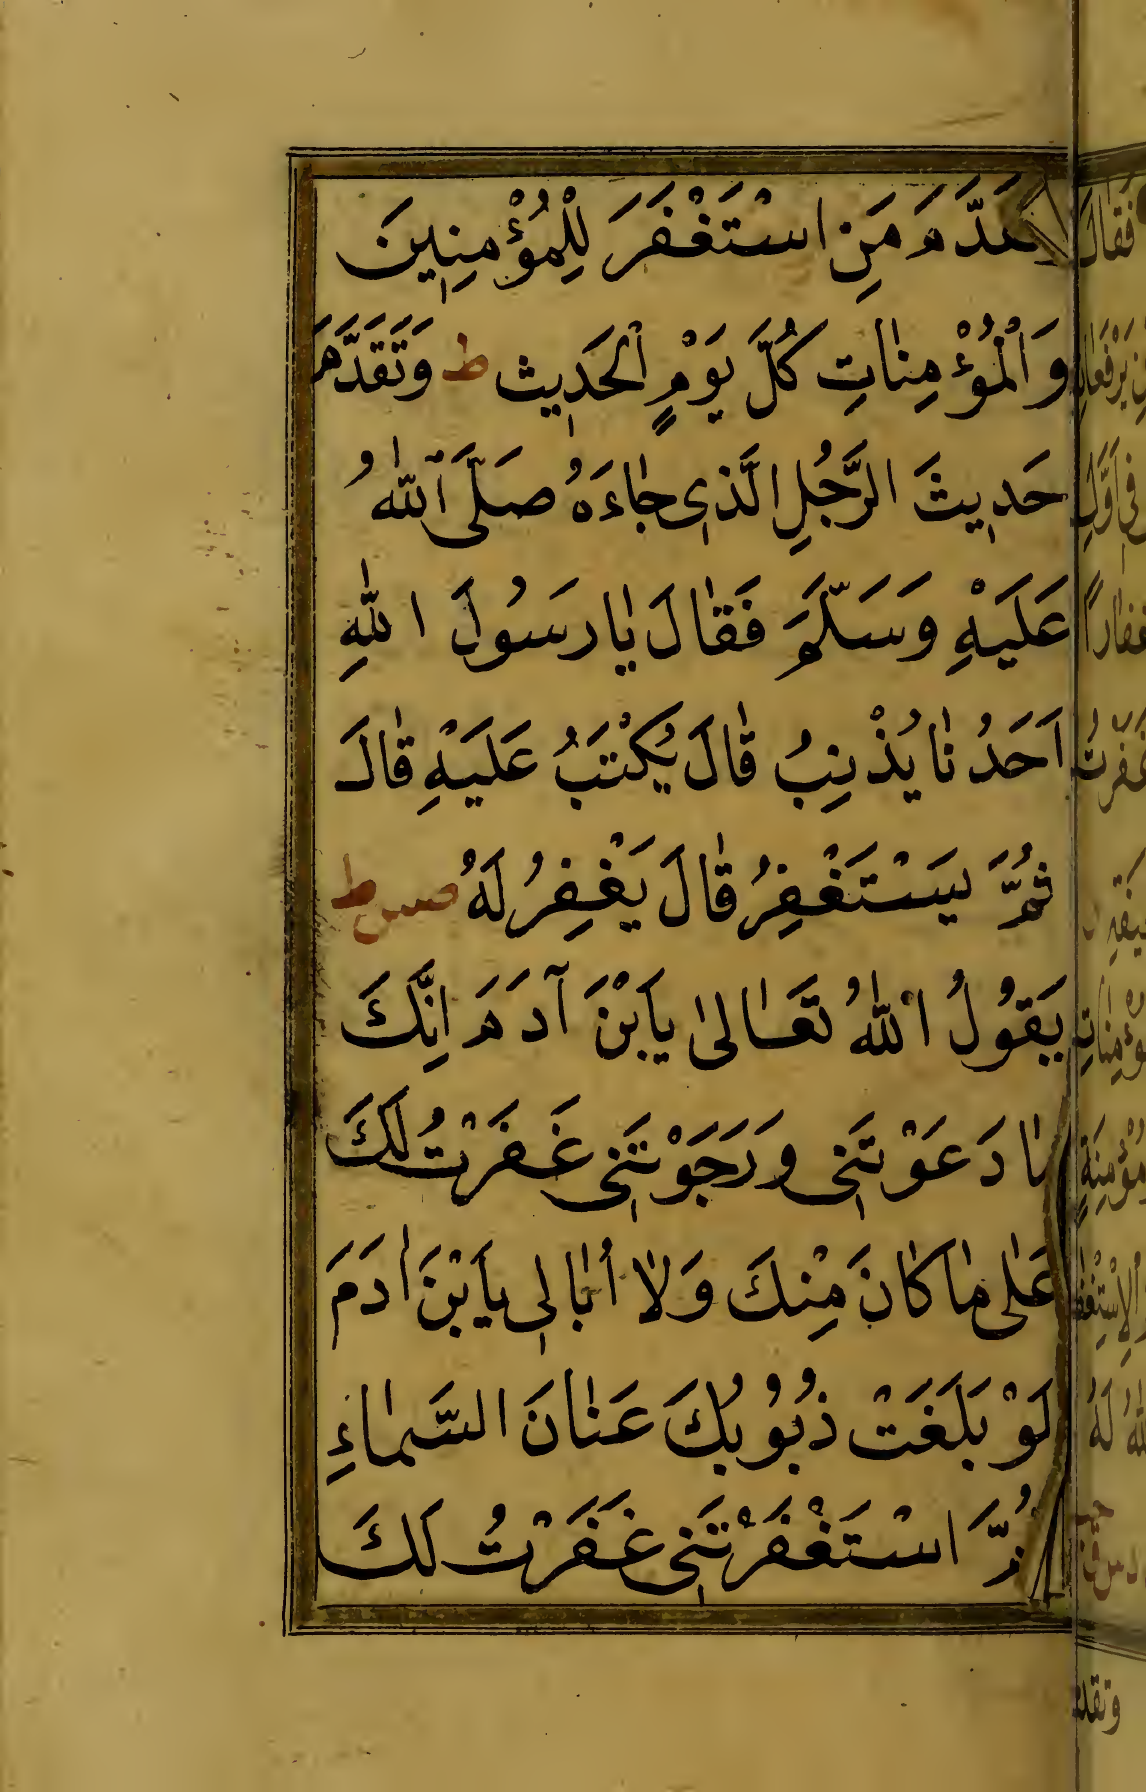 وَتَقَدَّمَ مَنِ اسْتَغْفَرَ لِلْمُؤْمِنِينَ
وَالْمُؤْمِنَاتِ كُلَّ يَوْمٍ الْحَدِيث ط وَتَقَدَّمَ
حَدِيثَ الرَّجُلِ الَّذِي جَاءَهُ صَلَّى اللهُ
عَلَيْهِ وَسَلَّمَ فَقَالَ يَا رَسُولَ اللهِ
اَحَدُنَا يُذْنِبُ قَالَ يُكْتَبُ عَلَيْهِ قَالَ
ثُمَّ يَسْتَغْفِرُ قَالَ يَغْفِرُ لَهُ صس ط
يَقُولُ اللهُ تَعَالَى يَابْنَ آدَمَ اِنَّكَ
مَا دَعَوْتَنِي وَرَجَوْتَنِي غَفَرْتُ لَكَ
عَلَى مَا كَانَ مِنْكَ وَلَا أُبَالِي يَابْنَ اٰدَمَ
لَوْ بَلَغَتْ ذُنُوبُكَ عَنَانَ السَّمَاءِ
ثُمَّ اسْتَغْفَرْتَنِي غَفَرْتُ لَكَ